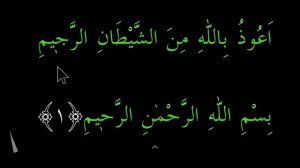 اَعُوذُ بِاللّٰهِ مِنَ الشَّيْطَانِ الرَّجٖيمِ
بِسْمِ اللّٰهِ الرَّحْمٰنِ الرَّحٖيمِ ﴿١﴾